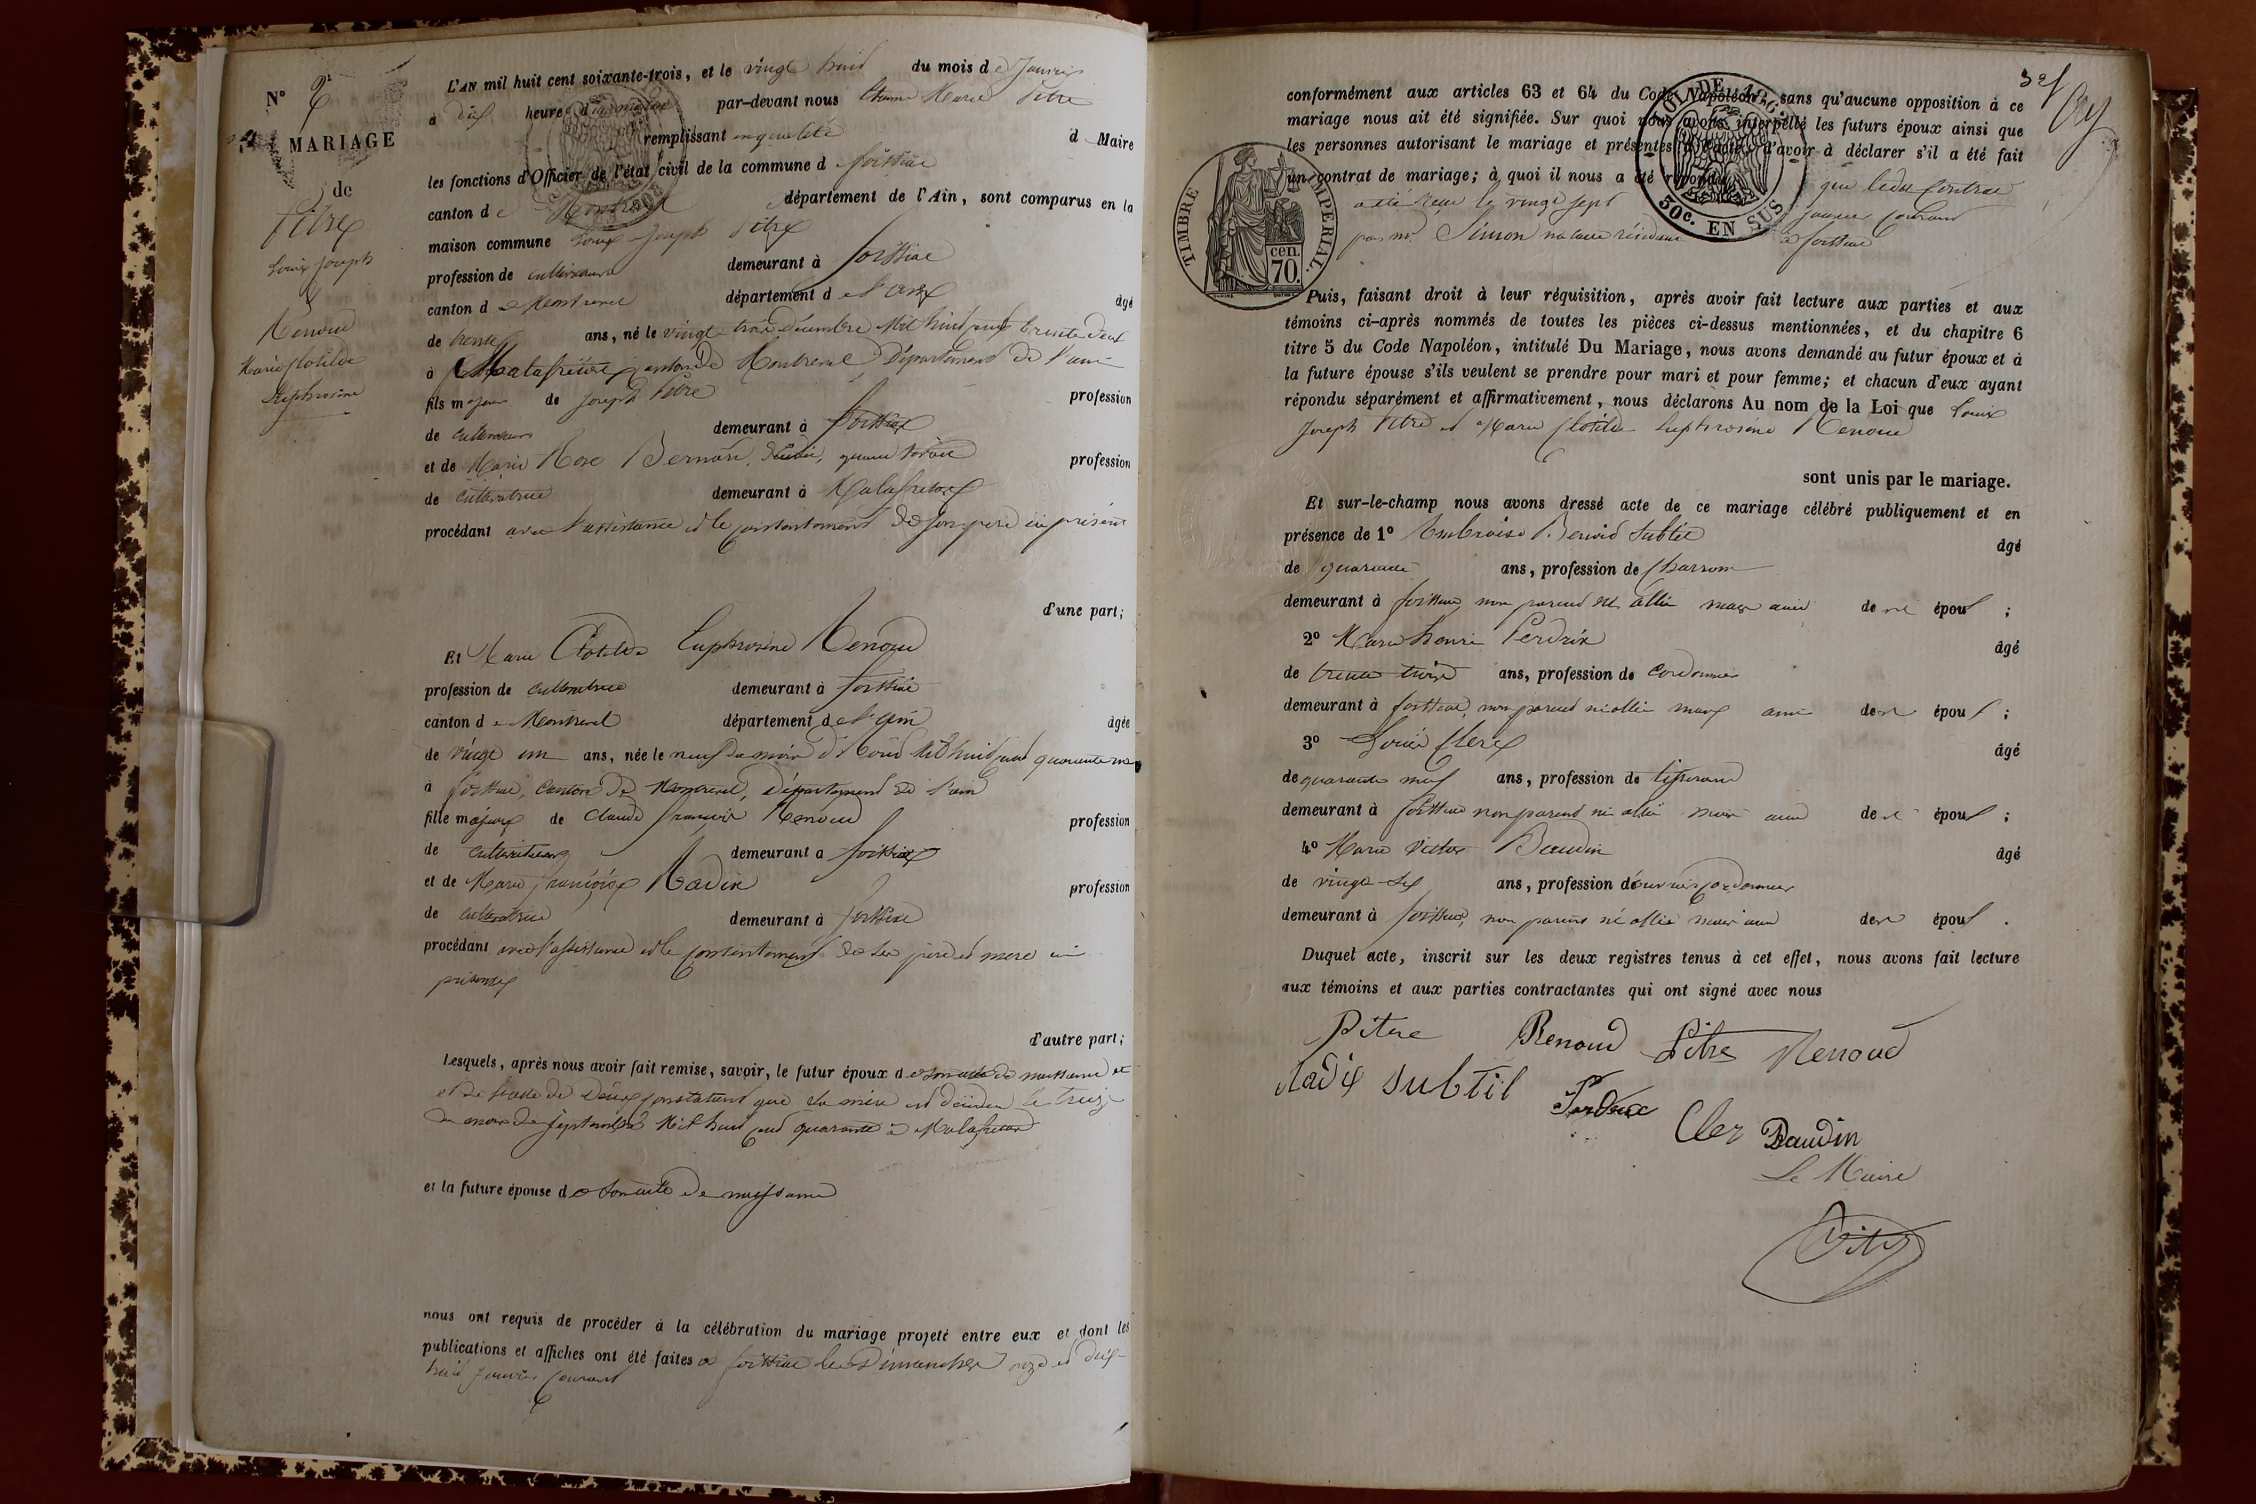 N° 2
MARIAGE
de
Pitre
Louis Joseph
&
Renoud
Marie Clotilde
Euphrosine
L'AN mil huit cent soixante-trois, et le vingt huit du mois de Janvier
à dix heure du par-devant nous Marie Pitre
remplissant en qualité d Maire
les fonctions d'Officier de l'état civil de la commune d foissiat
canton de Montrevel département de l'Ain, sont comparus en la
maison commune Louis Joseph Pitre
profession de cultivateur demeurant à foissiat
canton de Montrevel département de l'ain âgé
de trente ans, né le vingt trois décembre Mil huit cent trente deux
à Malafretaz canton de Montrevel, Département de l'ain
fils majeur de Joseph Pitre profession
de cultivateur demeurant à foissiat
et de Marie Rose Bernard, décédée, quand vivait profession
de cultivatrice demeurant à Malafretaz
procédant avec l'assistance et le consentement de son père ici présent
d'une part;
Et Marie Clotilde Euphrosine Renoud
profession de cultivatrice demeurant à foissiat
canton de Montrevel département de l'ain âgée
de vingt un ans, née le neuf du mois d'Août Mil huit cent quarante un
à foissiat, Canton de Montrevel, Département de l'ain
fille majeure de Claude françois Renoud profession
de cultivateur demeurant à foissiat
et de Marie françoise Nadix profession
de cultivatrice demeurant à foissiat
procédant avec l'assistance et le consentement de ses père et mere ici
présents
d'autre part;
Lesquels, après nous avoir fait remise, savoir, le futur époux de son acte de naissance et
et de l'acte de Décès constatant que sa mère est décédée le treize
du mois de septembre Mil huit cent quarante à Malafretaz
et la future épouse de son acte de naissance
nous ont requis de procéder à la célébration du mariage projeté entre eux et dont les
publications et affiches ont été faites à foissiat les Dimanches onze et dix-
huit Janvier courant
32
conformément aux articles 63 et 64 du Code Napoléon, sans qu'aucune opposition à ce
mariage nous ait été signifiée. Sur quoi nous avons interpellé les futurs époux ainsi que
les personnes autorisant le mariage et présentes à l'acte, d'avoir à déclarer s'il a été fait
un contrat de mariage; à quoi il nous a été répondu que ledit contrat
a été reçu le vingt sept Janvier courant
par me Simon notaire résidant à foissiat
TIMBRE IMPERIAL.
cen.
70.
LOI DE 1862
50c. EN SUS
Puis, faisant droit à leur réquisition, après avoir fait lecture aux parties et aux
témoins ci-après nommés de toutes les pièces ci-dessus mentionnées, et du chapitre 6
titre 5 du Code Napoléon, intitulé Du Mariage, nous avons demandé au futur époux et à
la future épouse s'ils veulent se prendre pour mari et pour femme; et chacun d'eux ayant
répondu séparément et affirmativement, nous déclarons Au nom de la Loi que Louis
Joseph Pitre et Marie Clotilde Euphrosine Renoud
sont unis par le mariage.
Et sur-le-champ nous avons dressé acte de ce mariage célébré publiquement et en
présence de 1° Ambroise Benoid Subtil âgé
de quarante ans, profession de Charron
demeurant à foissiat, non parent ni allié mais ami des époux ;
2° Marie henri Perdrix âgé
de trente trois ans, profession de Cordonnier
demeurant à foissiat, non parent ni allié mais ami des époux ;
3° Louis Clerc âgé
de quarante neuf ans, profession de tisserand
demeurant à foissiat non parent ni allié mais ami des époux ;
4° Marie Victor Baudin âgé
de vingt six ans, profession d'ouvrier cordonnier
demeurant à foissiat, non parent ni allié mais ami des époux .
Duquel acte, inscrit sur les deux registres tenus à cet effet, nous avons fait lecture
aux témoins et aux parties contractantes qui ont signé avec nous
Pitre Renoud Pitre Renoud
Nadix Subtil Perdrix Cler Baudin
Le Maire
Pitre